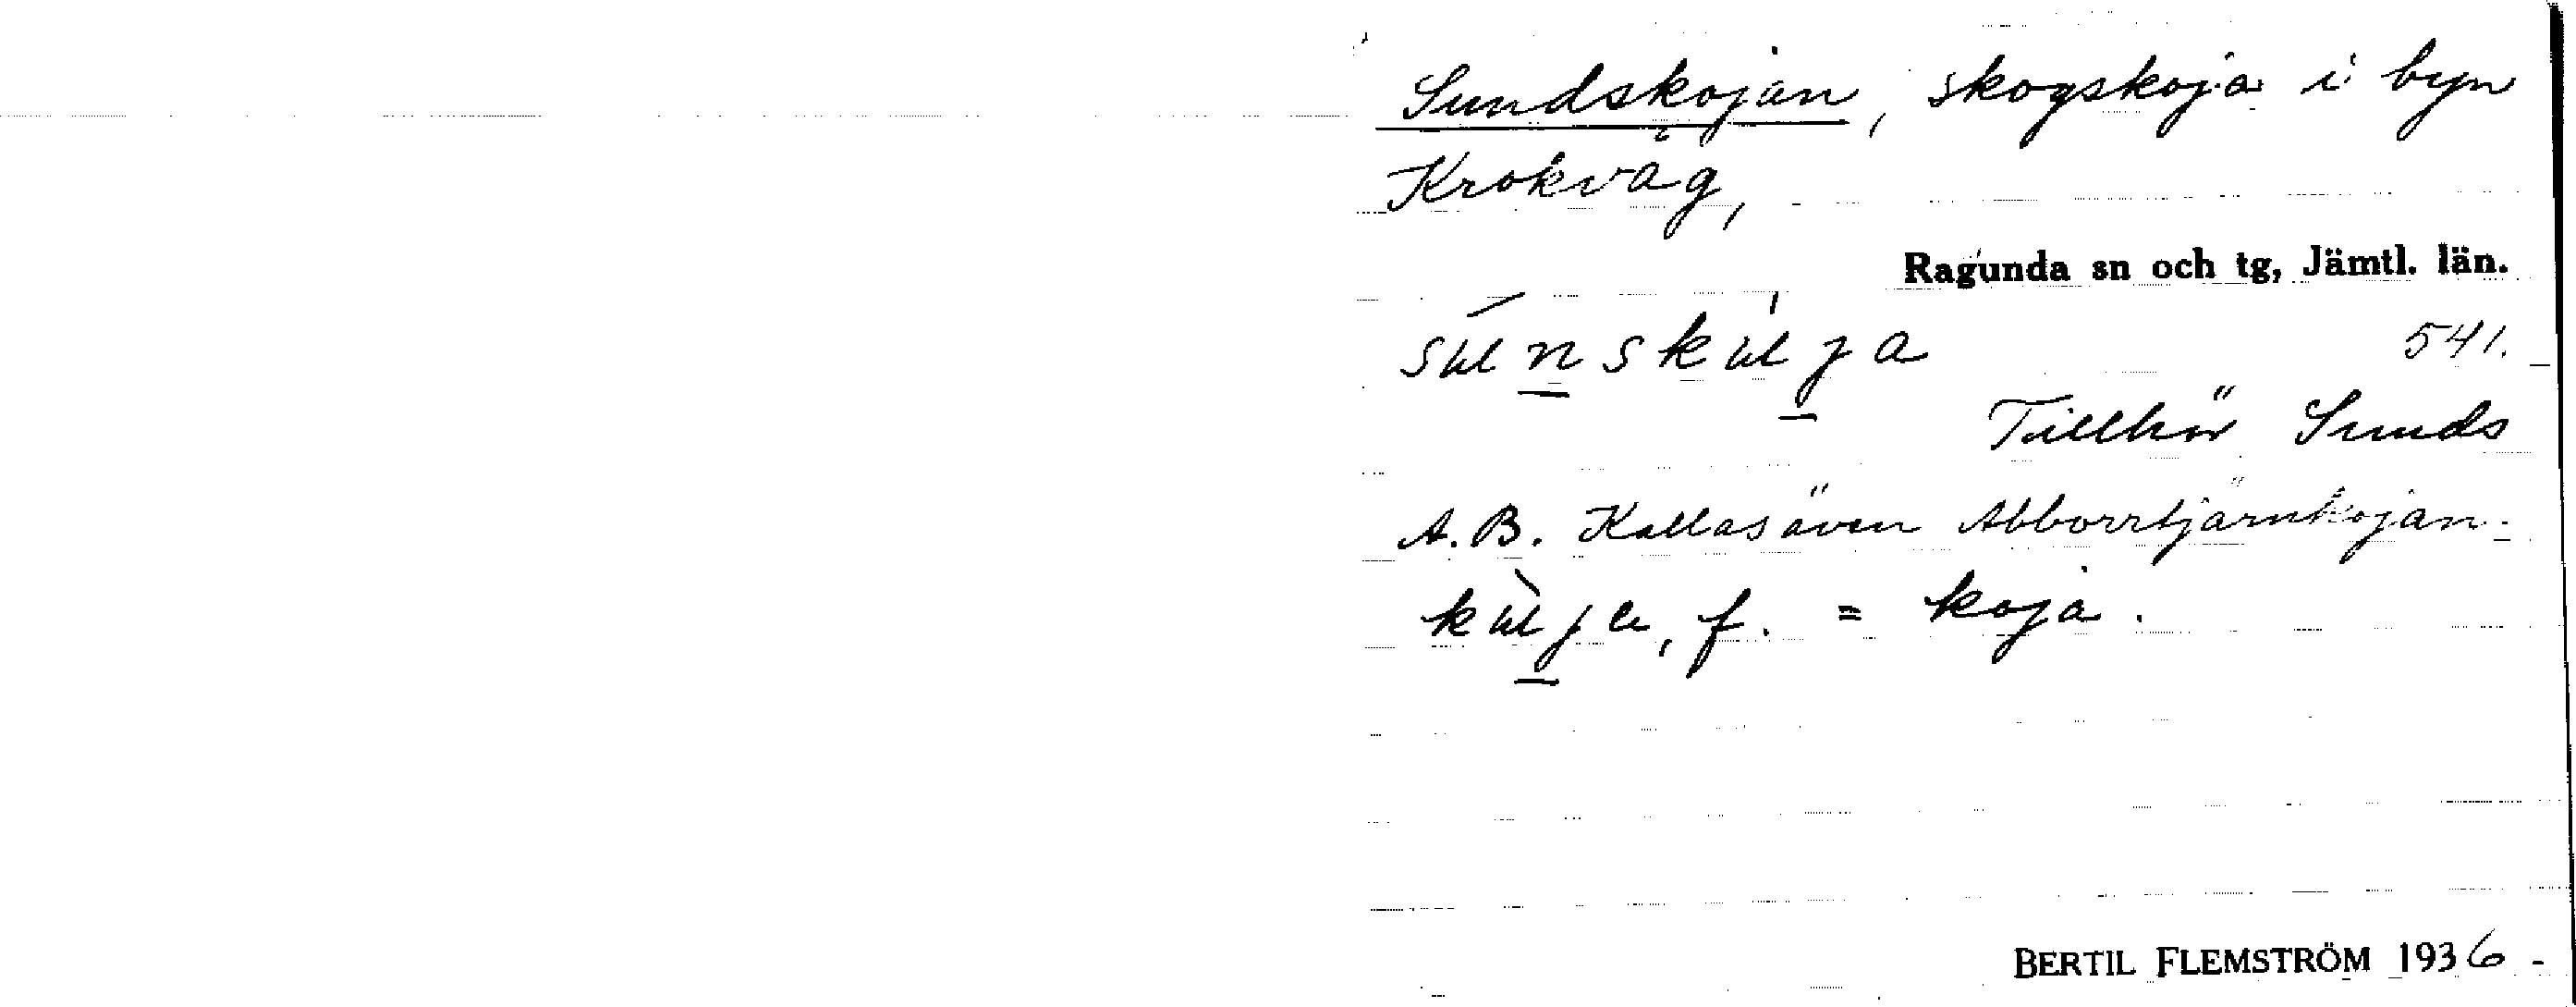 Sundskojan, skogskoja i byn
Krokvåg,
Ragunda sn och tg, Jämtl. län.
541.
Tillhör Sunds
A.B. Kallas även Abborrtjärnkojan.
f. = koja.
BERTIL FLEMSTRÖM 1936